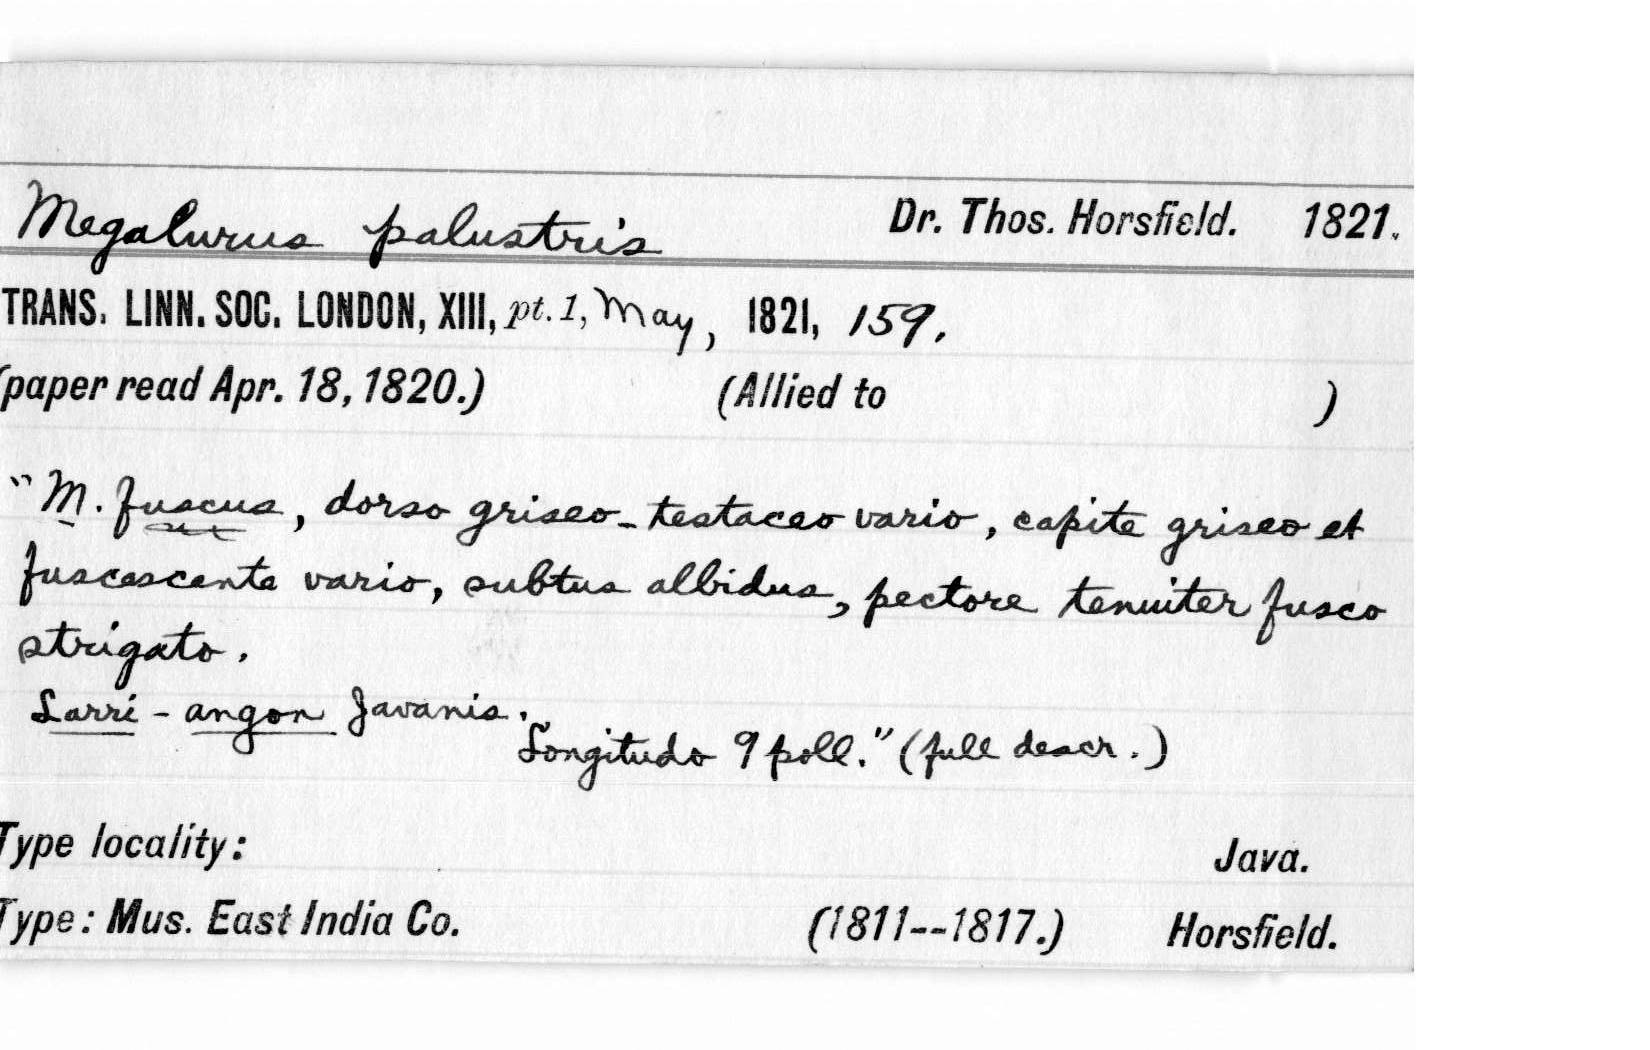 Megalurus palustris Dr. Thos. Horsfield. 1821.
TRANS. LINN. SOC. LONDON, XIII, pt. 1, May, 1821, 159.
(paper read Apr. 18, 1820.) (Allied to )
"M. fuscus, dorso griseo-testaceo vario, capite griseo et
fuscescente vario, subtus albidus, pectore tenuiter fusco
strigato.
Larri-angon Javanis.
Longitudo 9 poll." (full descr.)
Type locality: Java.
Type: Mus. East India Co. (1811--1817.) Horsfield.